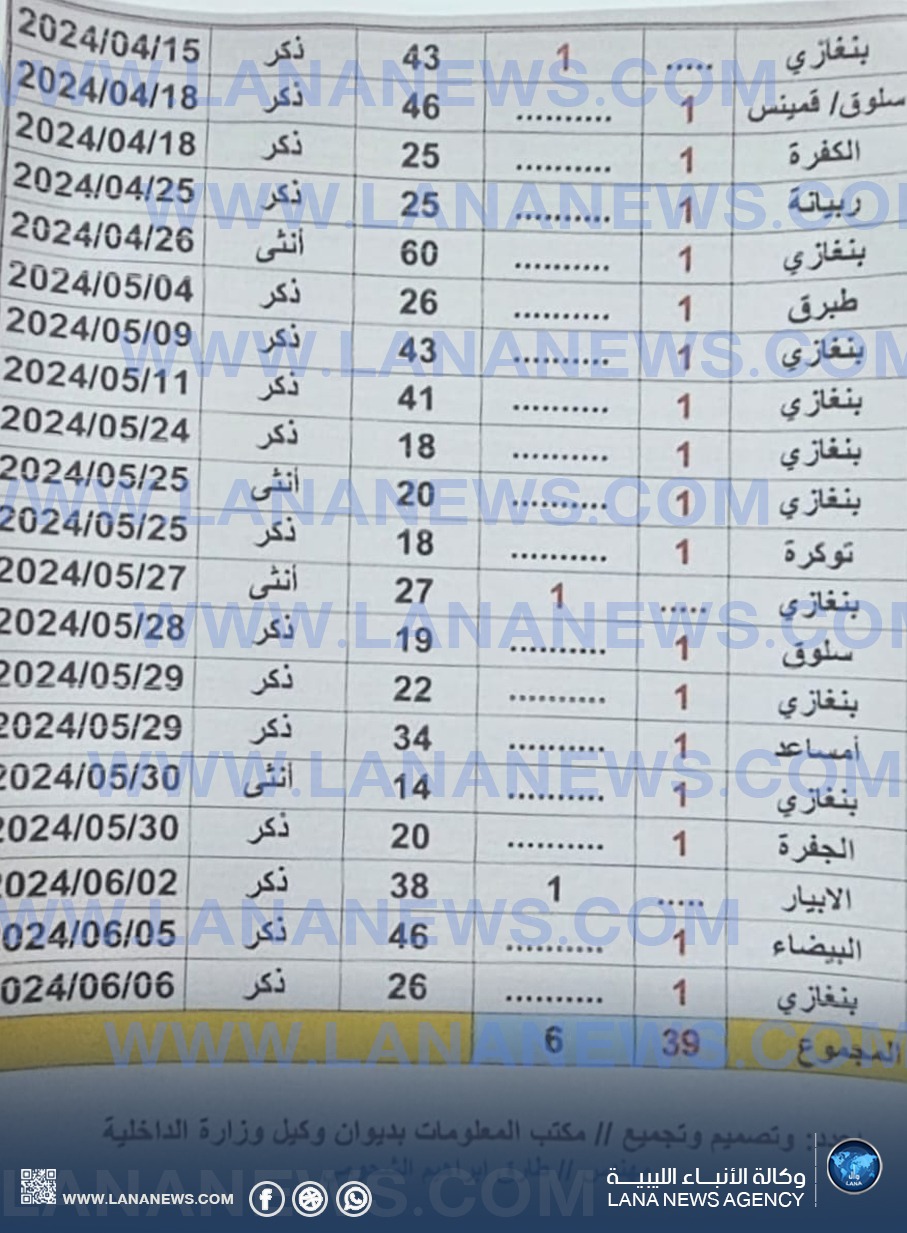 بنغازي ..... 1 43 ذكر 2024/04/15
سلوق/ قمينس 1 .......... 46 ذكر 2024/04/18
الكفرة 1 .......... 25 ذكر 2024/04/18
ربيانة 1 .......... 25 ذكر 2024/04/25
بنغازي 1 .......... 60 أنثى 2024/04/26
طبرق 1 .......... 26 ذكر 2024/05/04
بنغازي 1 .......... 43 ذكر 2024/05/09
بنغازي 1 .......... 41 ذكر 2024/05/11
بنغازي 1 .......... 18 ذكر 2024/05/24
بنغازي 1 .......... 20 أنثى 2024/05/25
توكرة 1 .......... 18 ذكر 2024/05/25
بنغازي ..... 1 27 أنثى 2024/05/27
سلوق 1 .......... 19 ذكر 2024/05/28
بنغازي 1 .......... 22 ذكر 2024/05/29
أمساعد 1 .......... 34 ذكر 2024/05/29
بنغازي 1 .......... 14 أنثى 2024/05/30
الجفرة 1 .......... 20 ذكر 2024/05/30
الابيار ..... 1 38 ذكر 024/06/02
البيضاء 1 .......... 46 ذكر 024/06/05
بنغازي 1 .......... 26 ذكر 024/06/06
المجموع 39 6
وتصميم وتجميع // مكتب المعلومات بديوان وكيل وزارة الداخلية
وكالة الأنباء الليبية
LANA NEWS AGENCY
WWW.LANANEWS.COM
WWW.LANANEWS.COM
WWW.LANANEWS.COM
WWW.LANANEWS.COM
WWW.LANANEWS.COM
WWW.LANANEWS.COM
WWW.LANANEWS.COM
WWW.LANANEWS.COM
WWW.LANANEWS.COM
LANANEWS.COM